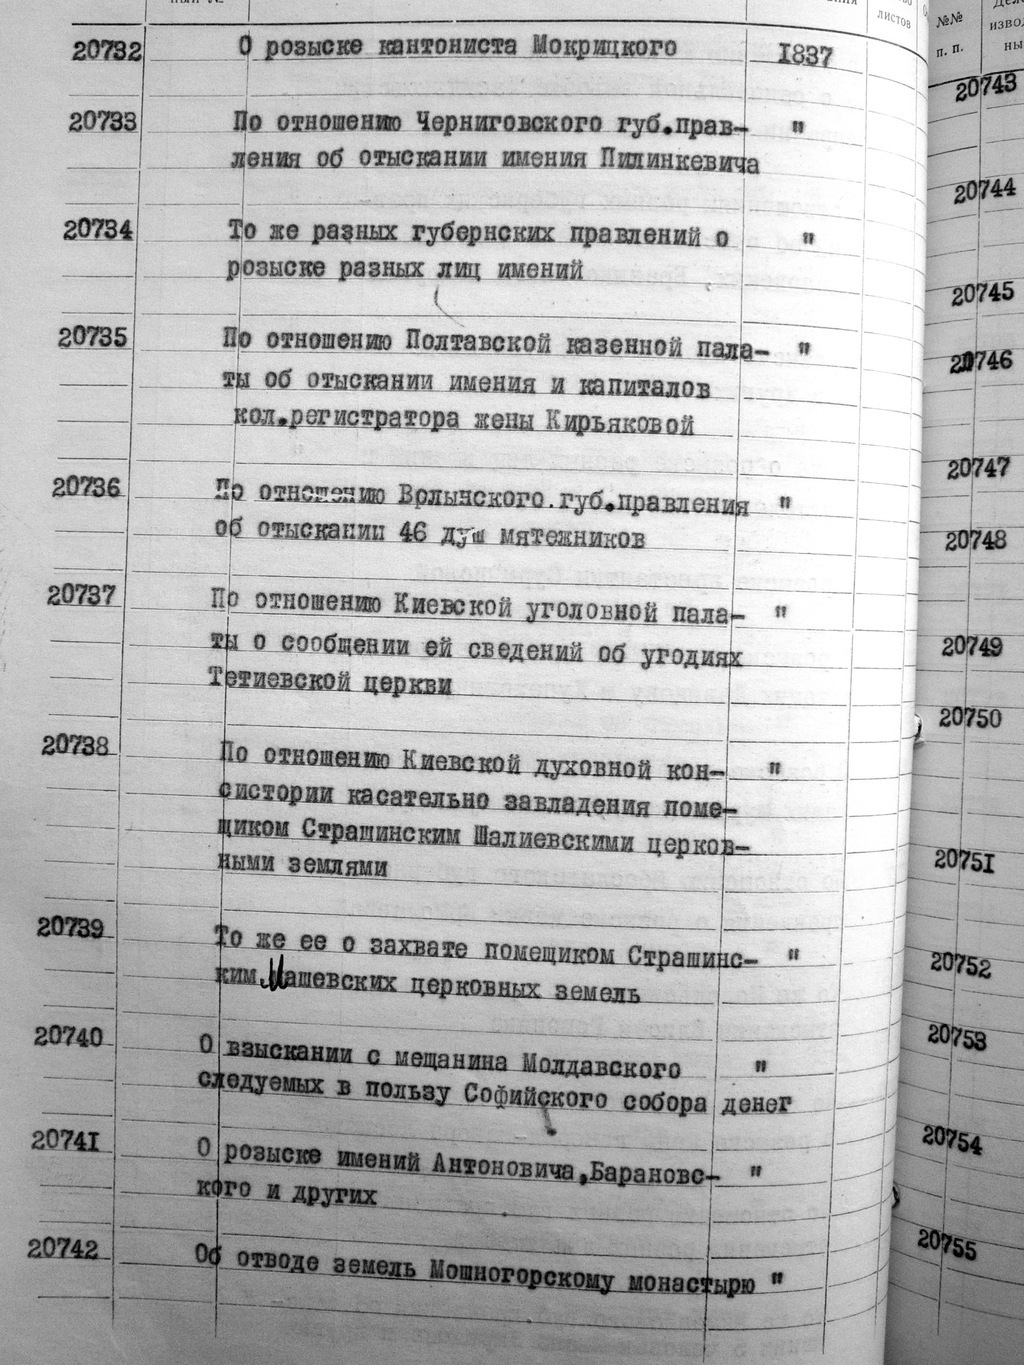 листов
№№
п. п.
20732 О розыске кантониста Мокрицкого 1837
20733 По отношению Черниговского губ.прав- "
ления об отыскании имения Пилинкевича
20734 То же разных губернских правлений о "
розыске разных лиц имений
20735 По отношению Полтавской казенной пала- "
ты об отыскании имения и капиталов
кол.регистратора жены Кирьяковой
20736 По отношению Волынского.губ.правления "
об отыскании 46 душ мятежников
20737 По отношению Киевской уголовной пала- "
ты о сообщении ей сведений об угодиях
Тетиевской церкви
20738 По отношению Киевской духовной кон- "
систории касательно завладения поме-
щиком Страшинским Шалиевскими церков-
ными землями
20739 То же ее о захвате помещиком Страшинс- "
ким Машевских церковных земель
20740 О взыскании с мещанина Молдавского "
следуемых в пользу Софийского собора денег
20741 О розыске имений Антоновича,Барановс- "
кого и других
20742 Об отводе земель Мошногорскому монастырю "
20743
20744
20745
20746
20747
20748
20749
20750
20751
20752
20753
20754
20755